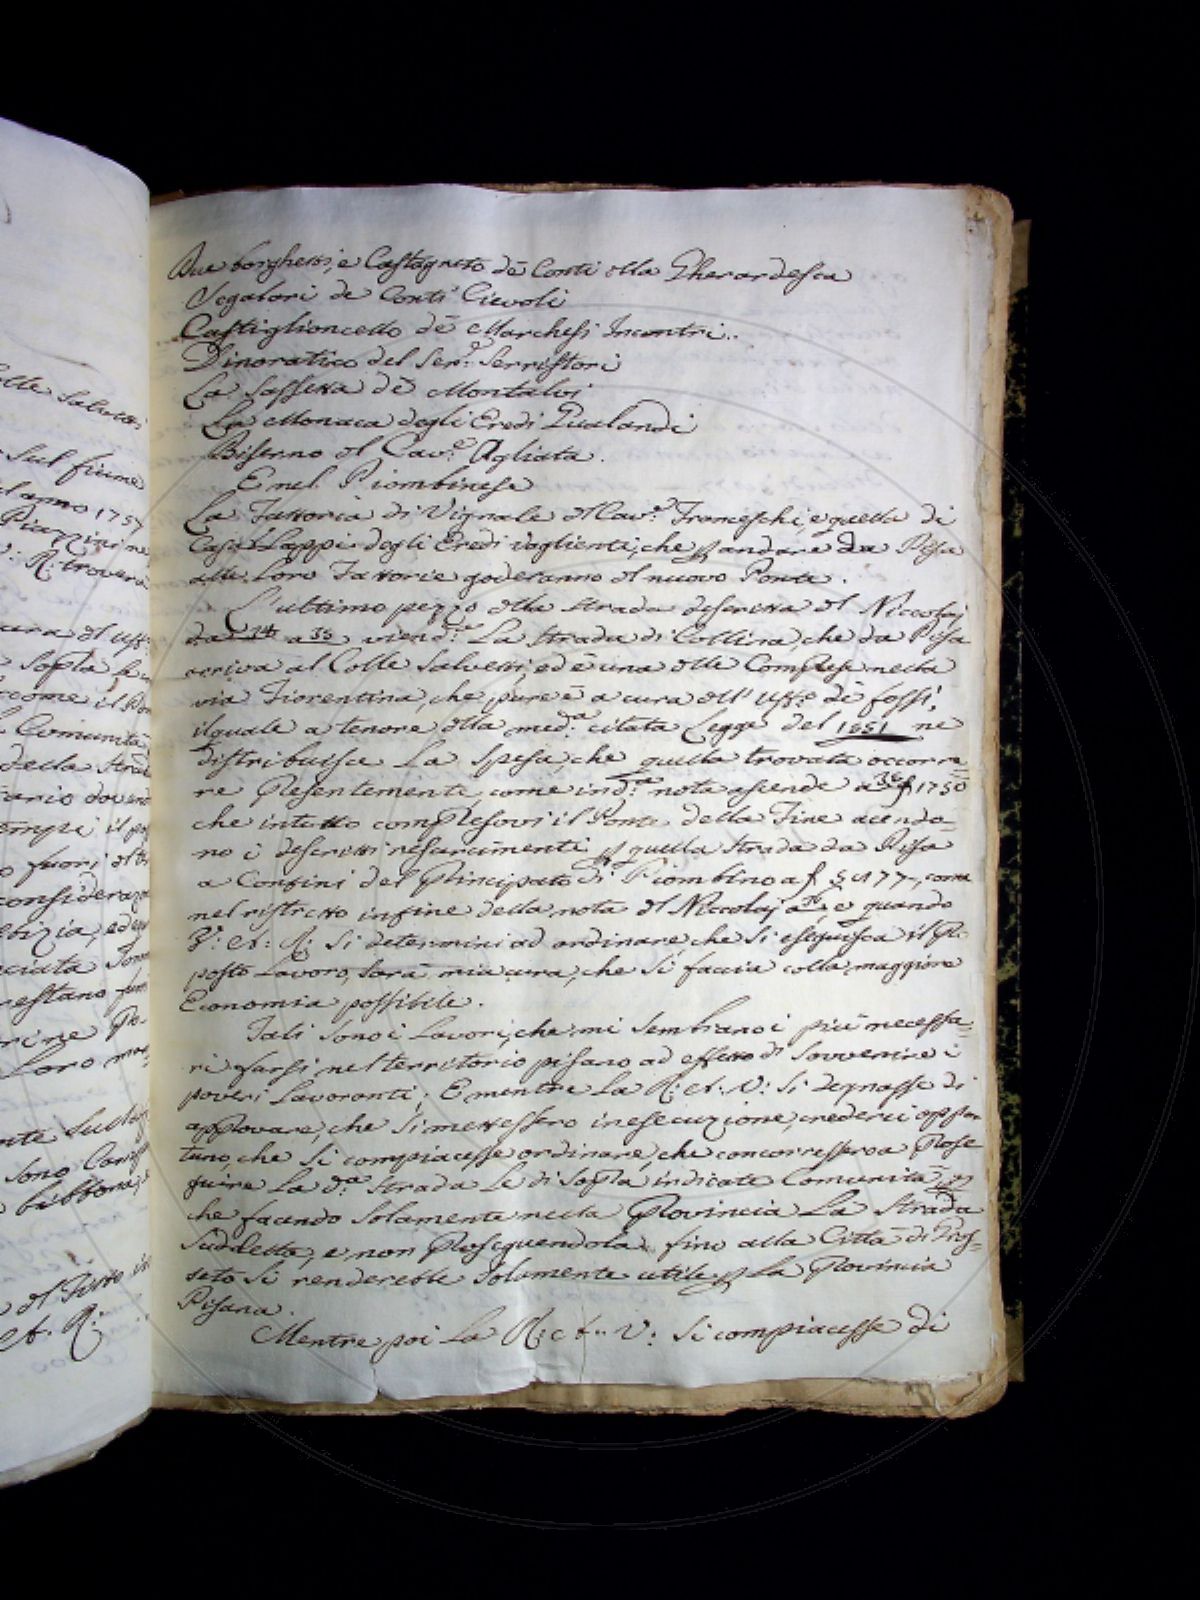 Due borghetti, e Castagneto dè Conti della Gherardesca
Segalari de Conti Cievoli
Castiglioncello dè Marchesi Incontri.
Dinoratico del Ser.e Serristori
La Sassetta dè Montalvi
La Monaca degli Eredi Gualandi
Biserno del Cav.e Agliata.
E nel Piombinese
La Fattoria di Vignale del Cav.e Franceschi, e quella di
Casa Lappi degli Eredi Vaglienti, che p andare da Pisa
alle Loro Fattorie goderanno del nuovo Ponte.
L'ultimo pezzo della strada descritta del Niccolaj
da 34 a 35 viend.e La Strada di Collina, che da Pisa
arriva al Colle Salvetti, ed è una delle Comprese nella
via Fiorentina, che pure è a cura dell' Uffo. dè fossi,
il quale a tenore della med.a citata Legge del 1651 ne
distribuisce La Spesa, che quella trovata occorre
re Presentemente, come in d.a nota ascende a 1750
che in tutto compresovi il Ponte della Fine acendo=
no i descritti resarcimenti p quella Strada da Pisa
a Confini del Principato di Piombino a 5477, come
nel ristretto in fine della nota del Niccolaj, e quando
V: A: R: Si determini ad ordinare, che Si eseguisca il P.
posto Lavoro, Sarà mia cura, che Si faccia colla maggiore
Economia possibile.
Tali Sono i Lavori, che mi Sembrano i più necessa=
ri farsi nel territorio pisano ad effetto di Sovvenire i
poveri Lavoranti; E mentre La R: A: V: Si degnasse di
approvare, che Si mettessero in esecuzione, crederei oppor
tuno, che Si compiacesse ordinare, che concorressero a Prose
guire La d.a Strada Le di Sopra indicate Comunità, p
che facendo Solamente nella Provincia La Strada
Suddetta, e non Proseguendola fino alla Città di Gros=
seto Si renderebbe Solamente utile p La Provincia
Pisana.
Mentre poi La R: A: V: Si compiacesse di